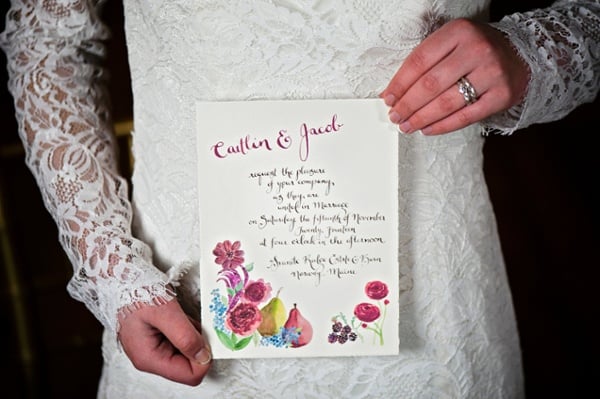 Caitlin & Jacob
request the pleasure
of your company,
as they, are
united in Marriage
on Saturday, the fifteenth of November
Twenty, Fourteen
at four o'clock in the afternoon.
Granite Ridge Estate & Barn
Norway, Maine